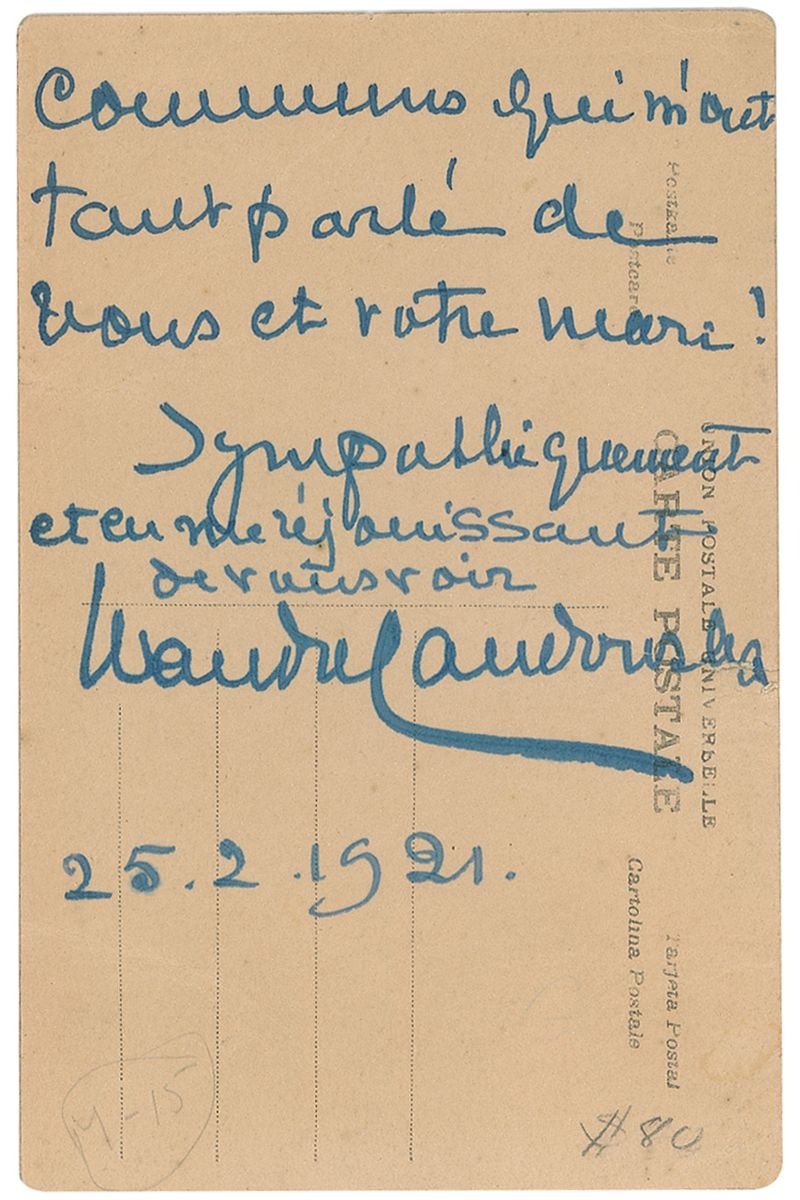 Communs qui m'ont
tant parlé de
vous et votre mari!
Sympathiquement
et en me réjouissant
de vous voir
Wanda Landowska
25.2.1921.
Postkarte
Postcard
UNION POSTALE UNIVERSELLE
CARTE POSTALE
Cartolina Postale
Tarjeta Postal
M-15
#80